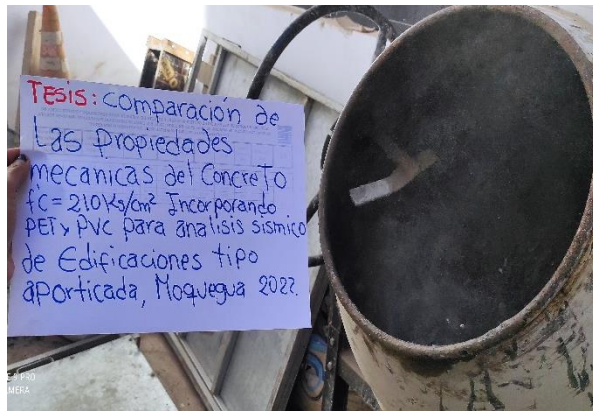 TESIS: comparación de
Las Propiedades
mecanicas del Concreto
f'c = 210 Ks/cm² Incorporando
PET y PVC para analisis sismico
de Edificaciones tipo
aporticada, Moquegua 2022.